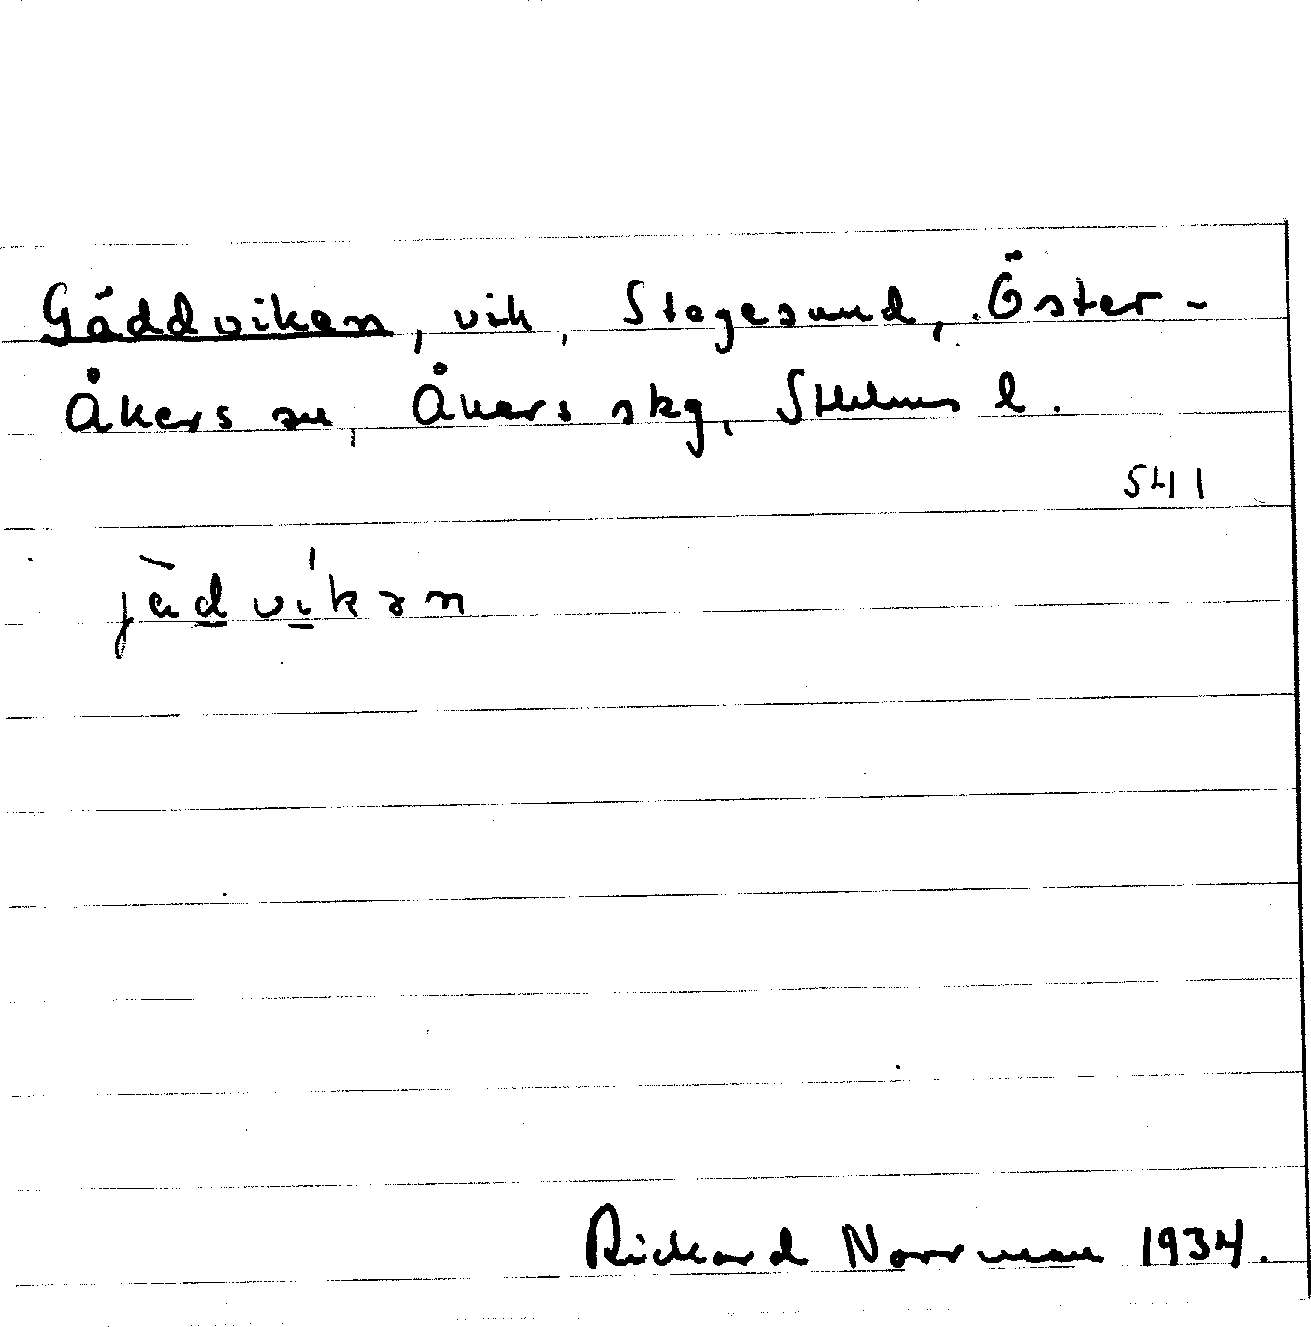 Gäddviken, vik, Stegesund, Öster-
Åkers sn, Åkers skg, Sthlms l.
541
jädvikən
Rickard Norrman 1934.